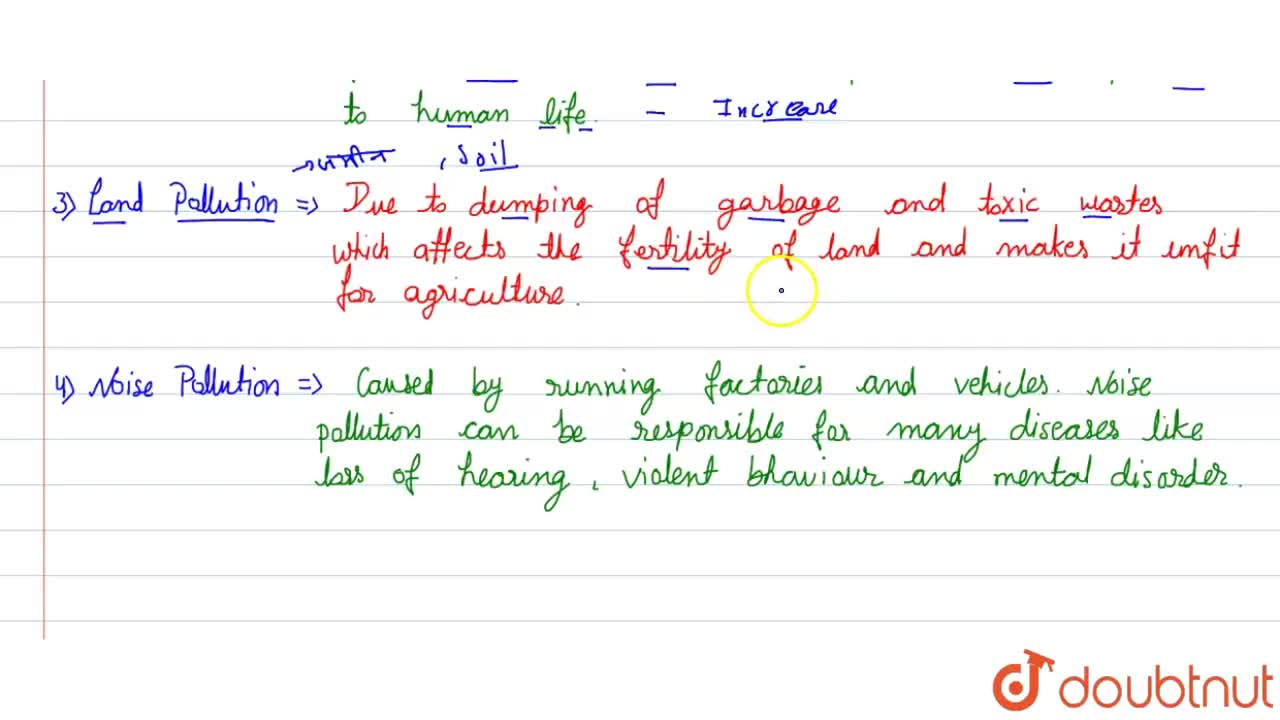 to human life. - Increase
→ जमीन , Soil
3) Land Pollution => Due to dumping of garbage and toxic wastes
which affects the fertility of land and makes it unfit
for agriculture.
4) Noise Pollution => Caused by running factories and vehicles. Noise
pollution can be responsible for many diseases like
loss of hearing, violent bhaviour and mental disorder.
doubtnut